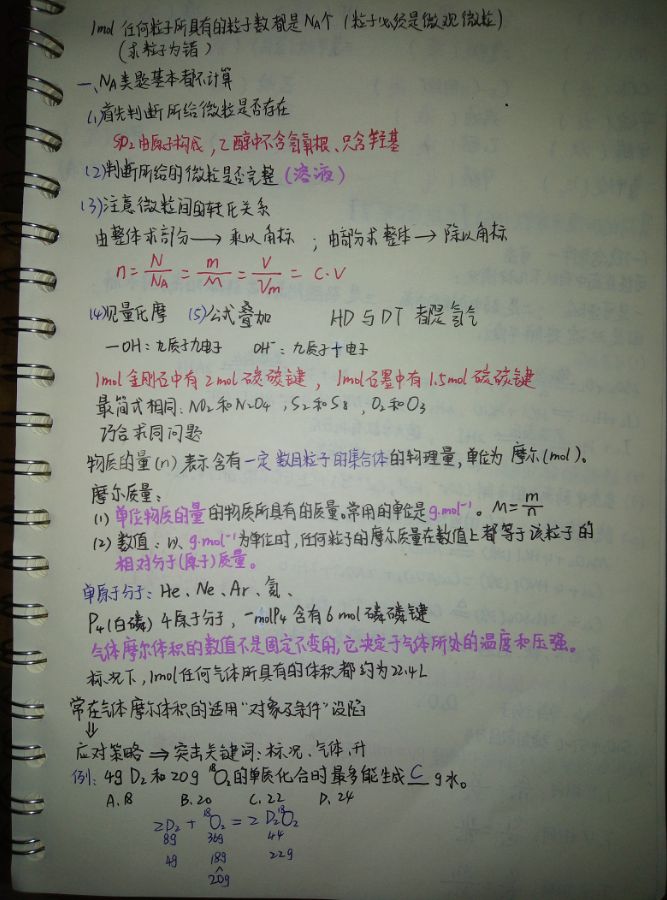 1mol 任何粒子所具有的粒子数都是NA个（粒子必须是微观微粒）
（求粒子为错）
一、NA类题基本都不计算
(1)首先判断所给微粒是否存在
SO2由原子构成，乙醇中不含氢氧根、只含羟基
(2)判断所给的微粒是否完整(溶液)
(3)注意微粒间的转化关系
由整体求部分→乘以角标；由部分求整体→除以角标
n=N/NA=m/M=V/Vm=C·V
(4)见量化摩 (5)公式叠加 HD与DT都是氢气
—OH：九质子九电子 OH⁻：九质子十电子
1mol金刚石中有2mol碳碳键，1mol石墨中有1.5mol碳碳键
最简式相同：NO2和N2O4，S2和S8，O2和O3
巧合求同问题
物质的量(n)表示含有一定数目粒子的集合体的物理量，单位为 摩尔(mol)。
摩尔质量：
(1)单位物质的量的物质所具有的质量。常用的单位是g.mol⁻¹。M=m/n
(2)数值：以g.mol⁻¹为单位时，任何粒子的摩尔质量在数值上都等于该粒子的
相对分子(原子)质量。
单原子分子：He、Ne、Ar、氪、
P4(白磷)4原子分子，一molP4含有6mol磷磷键
气体摩尔体积的数值不是固定不变的，它决定于气体所处的温度和压强。
标况下，1mol任何气体所具有的体积都约为22.4L
常在气体摩尔体积的适用“对象及条件”设陷
⇓
应对策略⇒突击关键词：标况、气体、升
例：4g D2和20g ¹⁸O2的单质化合时最多能生成C g水。
A.18 B.20 C.22 D.24
2D2+¹⁸O2=2D2¹⁸O2
8g 36g 44
4g 18g 22g
^
20g